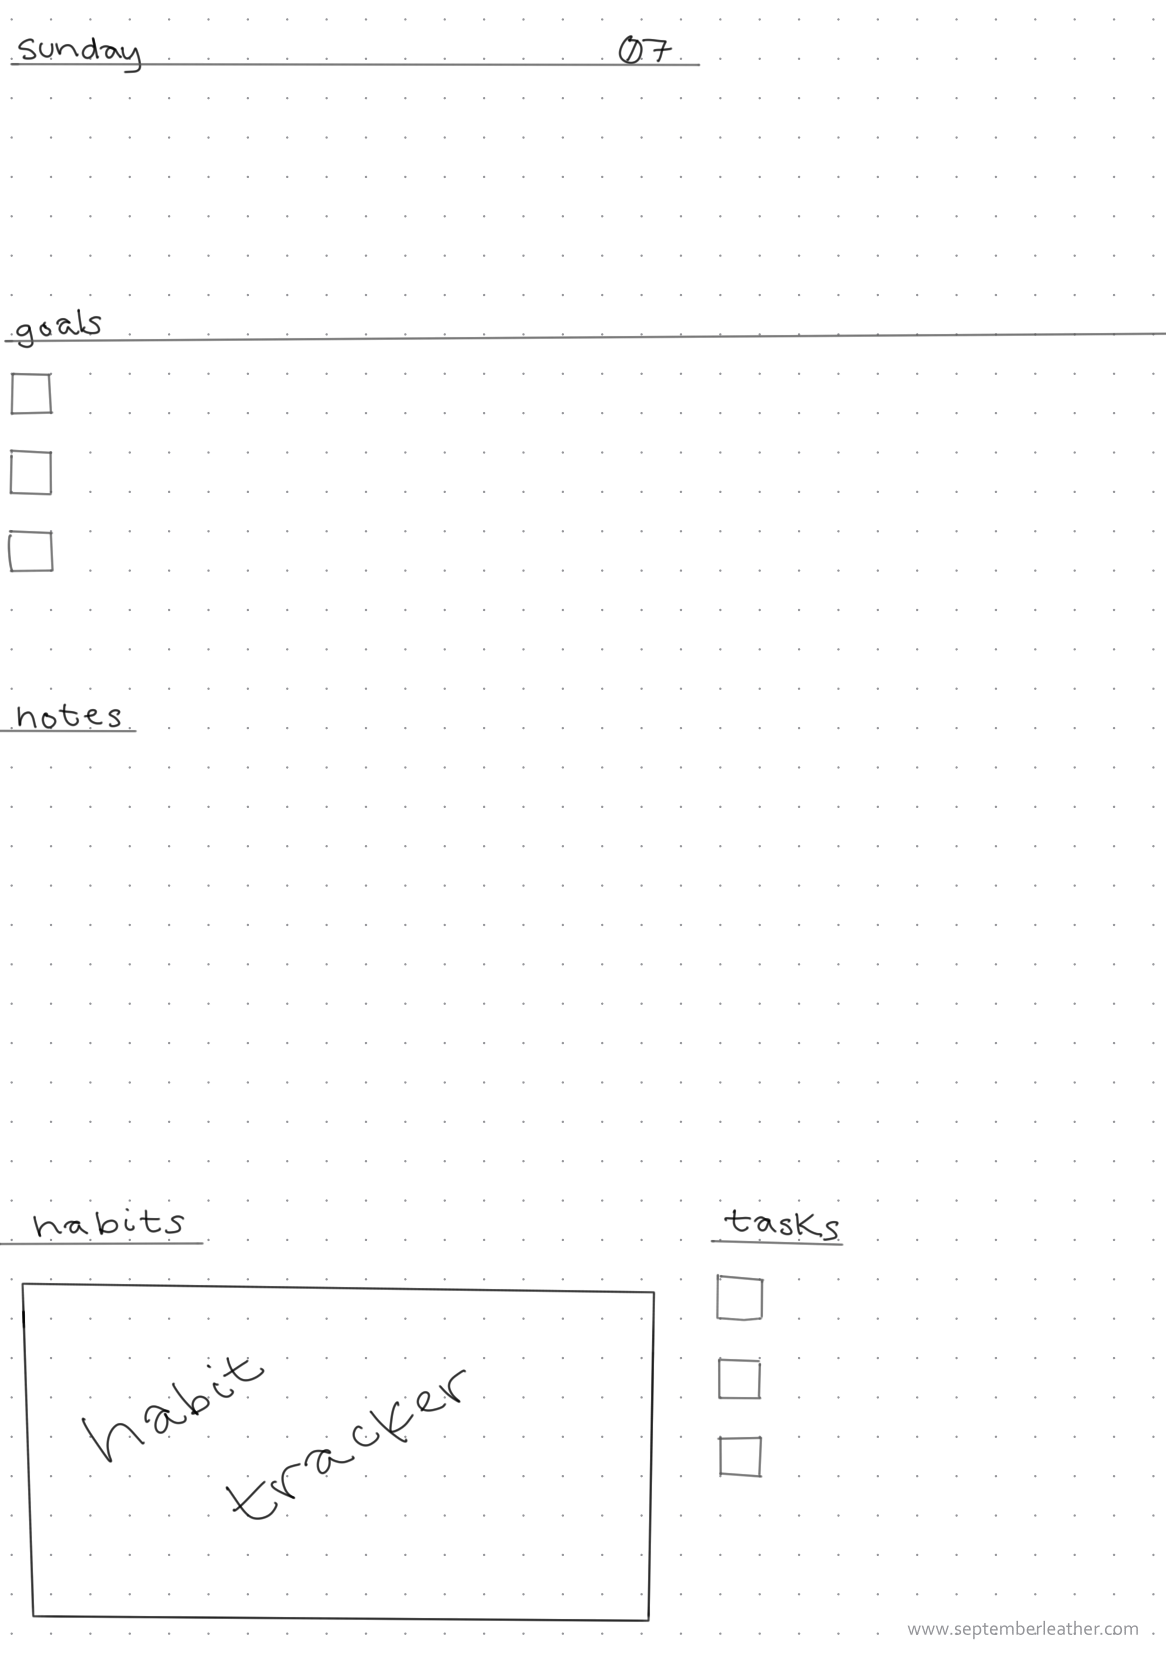 sunday 07
goals
notes
habits
tasks
habit
tracker
www.septemberleather.com